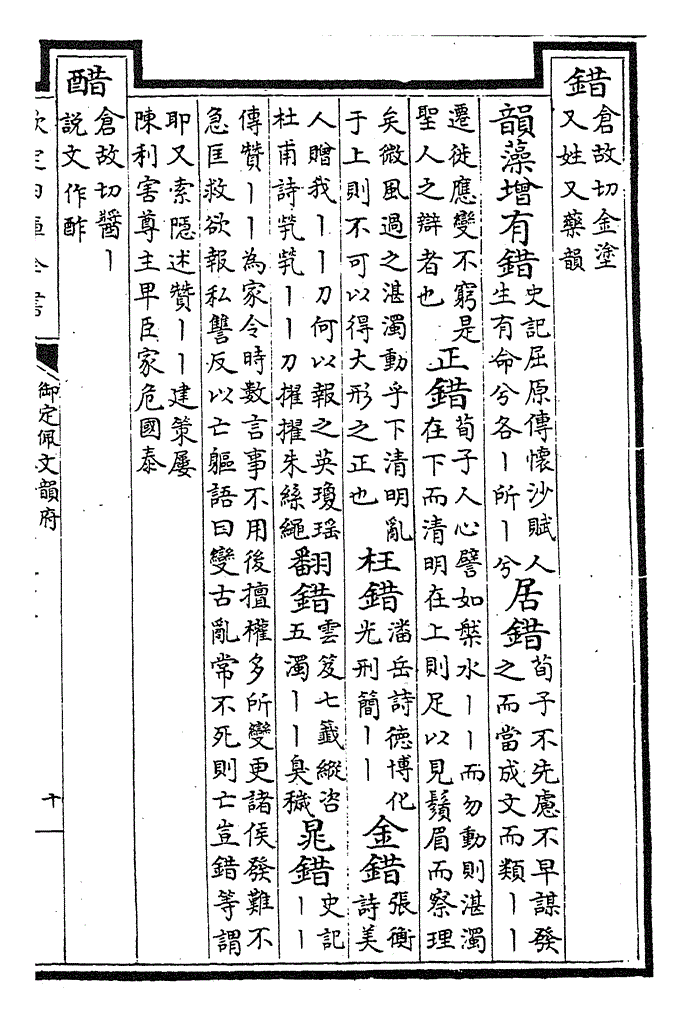 錯倉故切金塗
又姓又藥韻
韻藻增有錯史記屈原傳懷沙賦人
生有命兮各丨所丨兮居錯荀子不先慮不早謀發
之而當成文而類丨丨
遷徙應變不窮是
聖人之辯者也正錯荀子人心譬如槃水丨丨而勿動則湛濁
在下而清明在上則足以見鬚眉而察理
矣微風過之湛濁動乎下清明亂
于上則不可以得大形之正也枉錯潘岳詩德博化
光刑簡丨丨金錯張衡
詩美
人贈我丨丨刀何以報之英瓊瑶
杜甫詩熒熒丨丨刀擢擢朱絲繩翻錯雲笈七籤縱咨
五濁丨丨臭穢晁錯史記
丨丨
傳贊丨丨為家令時數言事不用後擅權多所變更諸侯發難不
急匡救欲報私讐反以亡軀語曰變古亂常不死則亡豈錯等謂
耶又索隱述贊丨丨建策屢
陳利害尊主卑臣家危國泰
醋倉故切醬丨
説文作酢
欽定四庫全書
御定佩文韻府
十